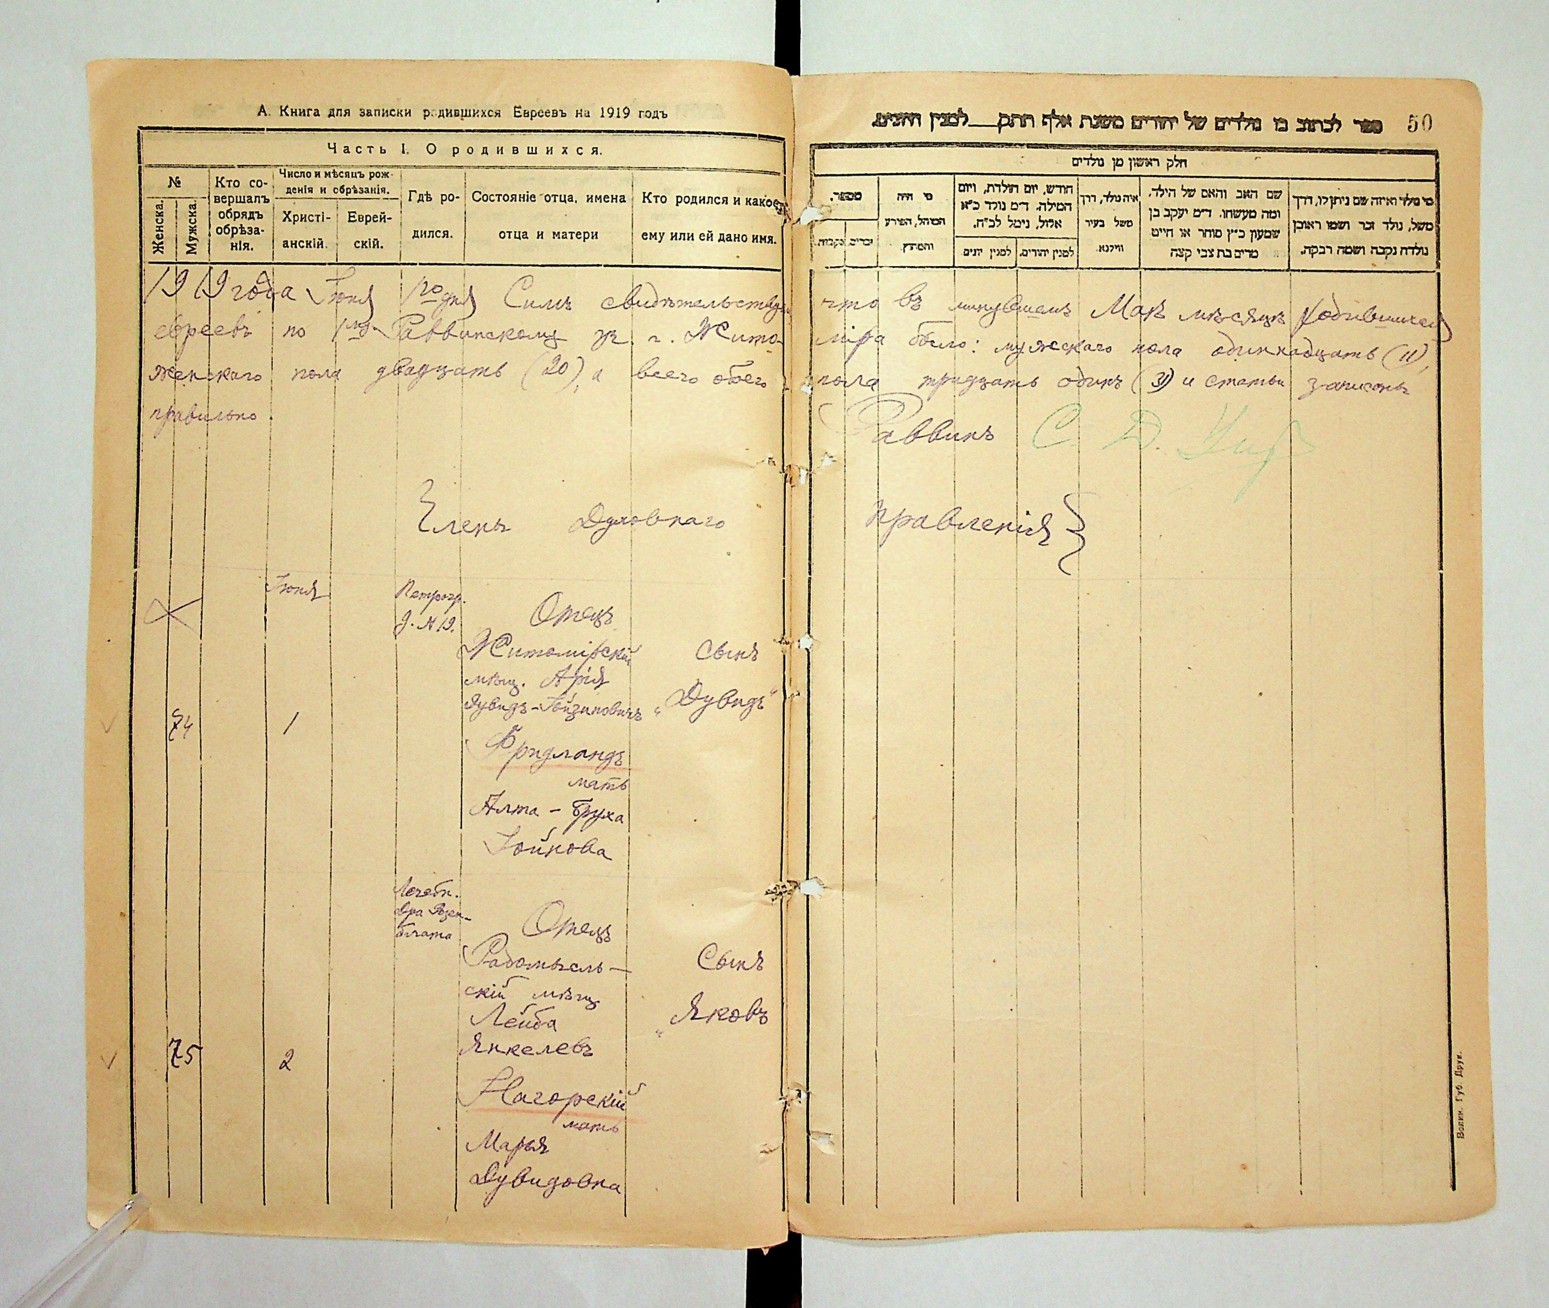 А. Книга для записки родившихся Евреевъ на 1919 годъ
Часть I. О родившихся.
№
Женска.
Мужска.
Кто со-
вершалъ
обрядъ
обрѣза-
нія.
Число и мѣсяцъ рож-
денія и обрѣзанія.
Христі-
анскій.
Еврей-
скій.
Гдѣ ро-
дился.
Состояніе отца, имена
отца и матери
Кто родился и какое
ему или ей дано имя.
ספר לכתוב בו נולדים של יהודים משנת אלף תתק למנין היונים. 50
חלק ראשון מן נולדים
מספר.
זכרים.
נקבות.
מי היה
המוהל, הפורע
והמוצץ.
חודש, יום הולדת, ויום
המילה. ד״מ נולד כ״א
אלול, נימול לכ״ח.
למנין יהודים.
למנין יונים.
איה נולד, דרך
משל בעיר
ווילנא.
שם האב והאם של הילד,
ומה מעשהו. ד״מ יעקב בן
שמעון כ״ץ סוחר או חייט
מרים בת צבי קצה
מי נולד ואיזה שם ניתן לו, דרך
משל, נולד זכר ושמו ראובן
נולדה נקבה ושמה רבקה.
1919 года Іюня 1го дня Симъ свидѣтельствую что въ минувшемъ Маѣ мѣсяцѣ родившихся
евреевъ по 1му Раввинскому уч. г. Житоміра было: мужскаго пола одиннадцать (11),
женскаго пола двадцать (20), а всего обоего пола тридцать одинъ (31) и статьи записаны
правильно.
Раввинъ С. Д.
Члены Духовнаго Правленія
Іюня
Петрогр.
д. № 19.
74
1
Отецъ
Житомірскій
мѣщ. Арія
Дувидъ-Іойзиповичъ
Фридландъ
мать
Алта - Бруха
Іойнова
Сынъ
„Дувидъ"
Лечебн.
вра Розен-
блата
75
2
Отецъ
Радомысль-
скій мѣщ
Лейба
Янкелевъ
Нагорскій
мать
Марья
Дувидовна
Сынъ
„Яковъ
Волын. Губ. Друк.